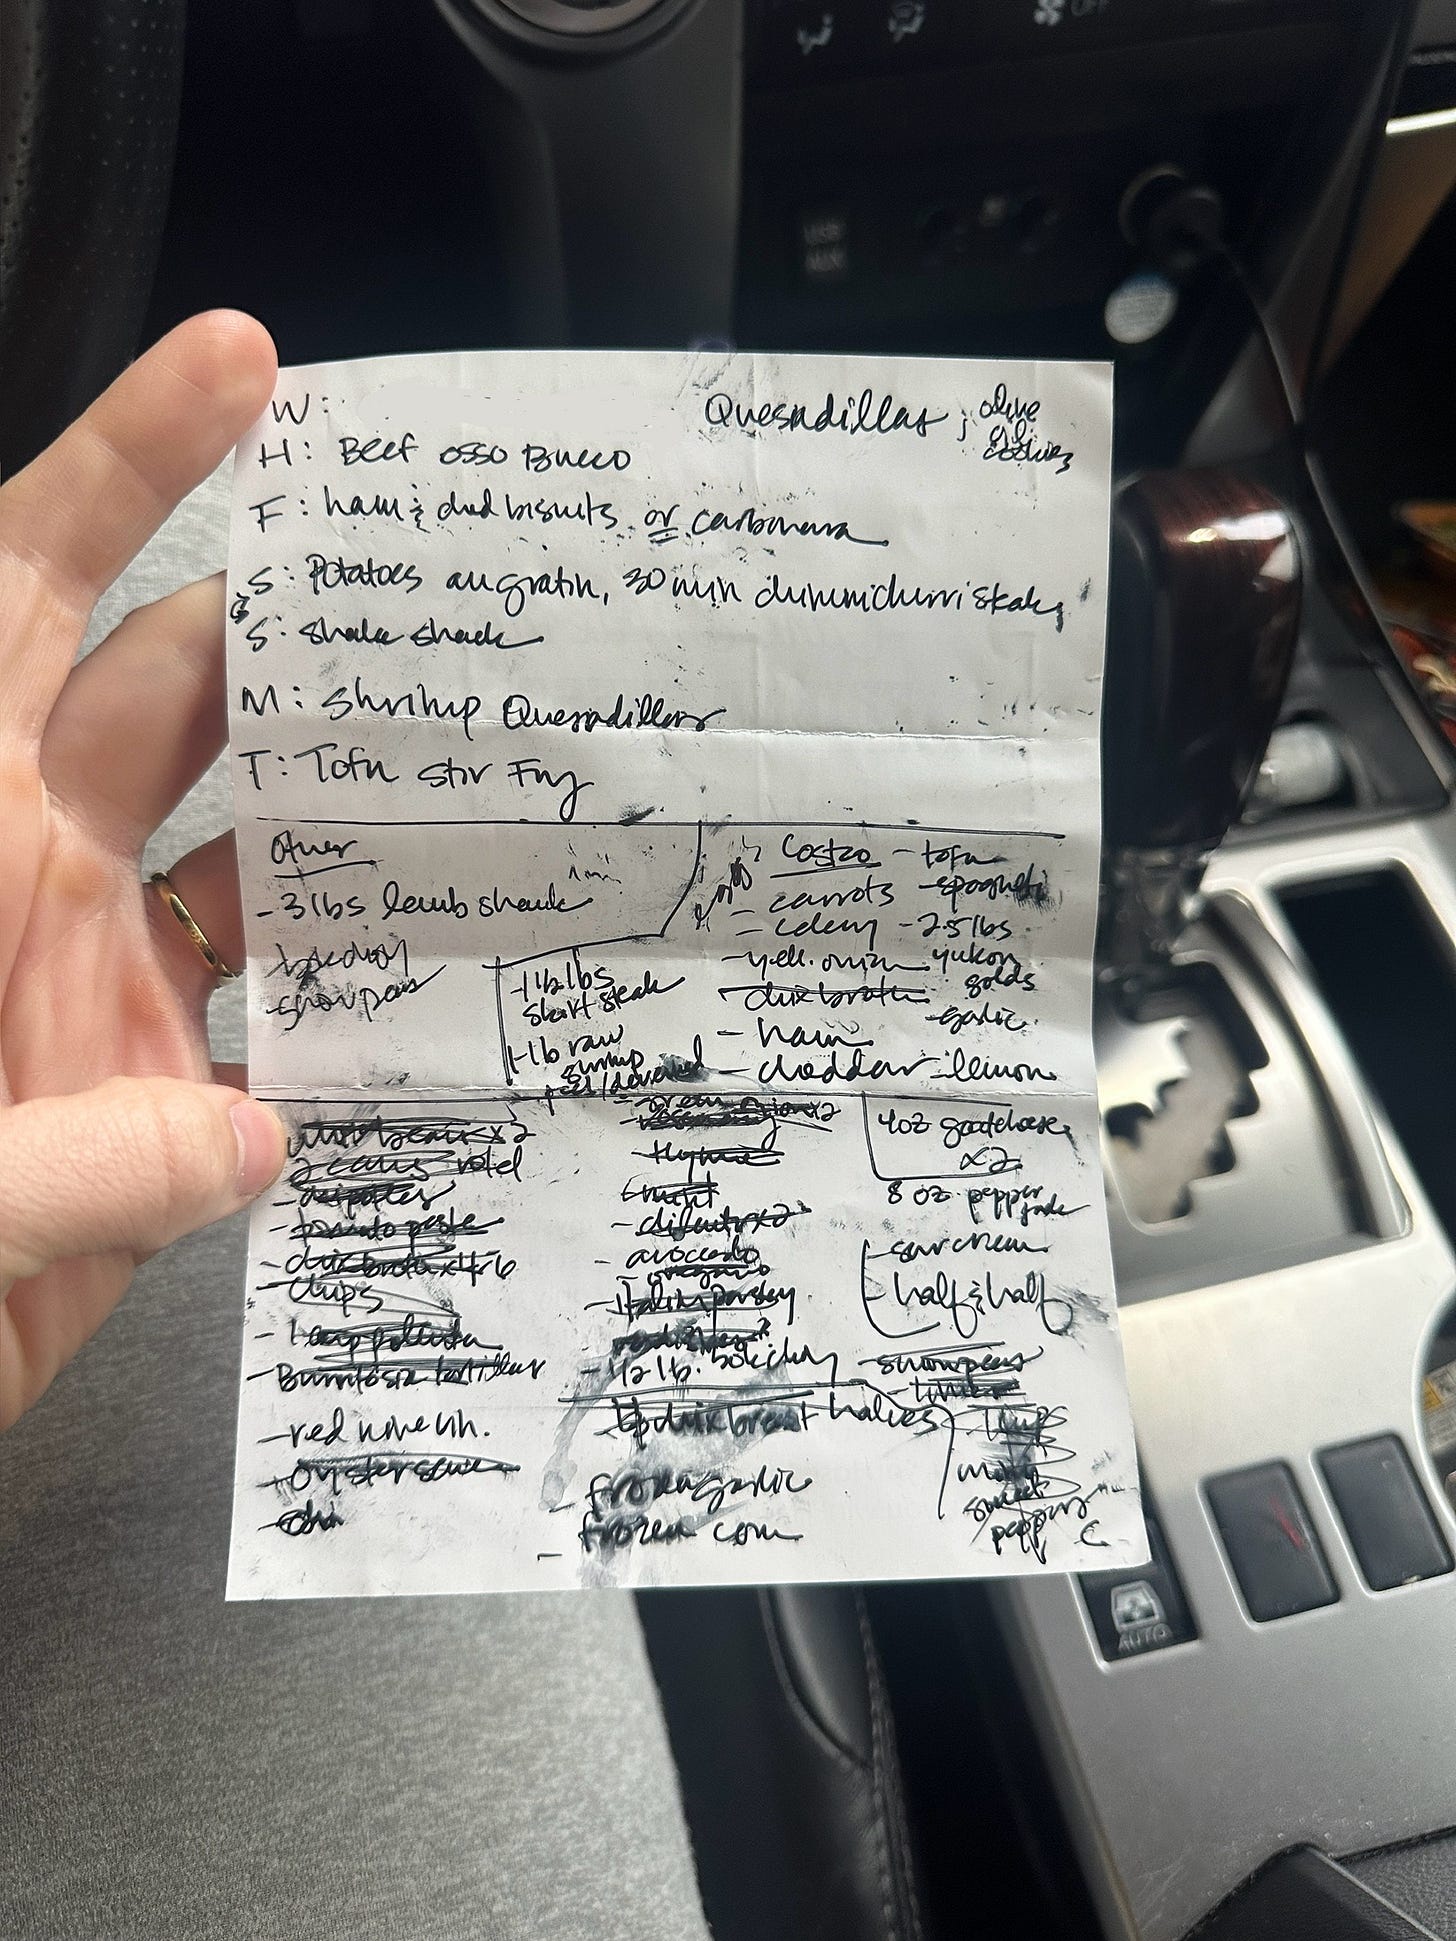 W: Quesadillas ; olive oil cookies
H: Beef osso Bucco
F: ham & ched biscuits or carbonara
S: Potatoes au gratin, 30 min chimmichurri skak
S: Shake shack
M: Shrimp Quesadillas
T: Tofu Stir Fry
Other
- 3 lbs lamb shank
bok choy
- snow peas
- 1 1/2 lbs
skirt steak
- 1 lb raw
shrimp
peel/deveined
Costco
- carrots
- celery
- yell. onion
- chix broth
- ham
- cheddar
- tofu
- spaghetti
- 2.5 lbs
yukon
golds
- garlic
- lemon
2 cans rotel
- tomato paste
- chix broth x 4-6
- chips
- Burrito size tortillas
- red wine vin.
- oyster sauce
- green onion x2
- thyme
- mint
- cilantro x2
- avocado
- oregano
- Italian parsley
radishes
- 1/2 lb. bok choy
chix breast halves
- frozen garlic
- frozen corn
4oz goat cheese
x2
8 oz. pepper
jack
- sour cream
- half & half
- snow peas
- limes
mini
sweet
peppers
USB
AUX
OFF
AUTO